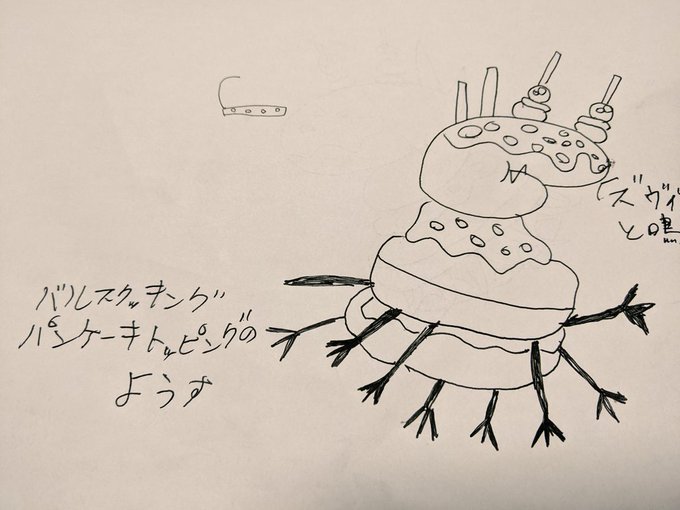 (ズヴィ
と
バルスクッキング
パンケーキトッピングの
ようす